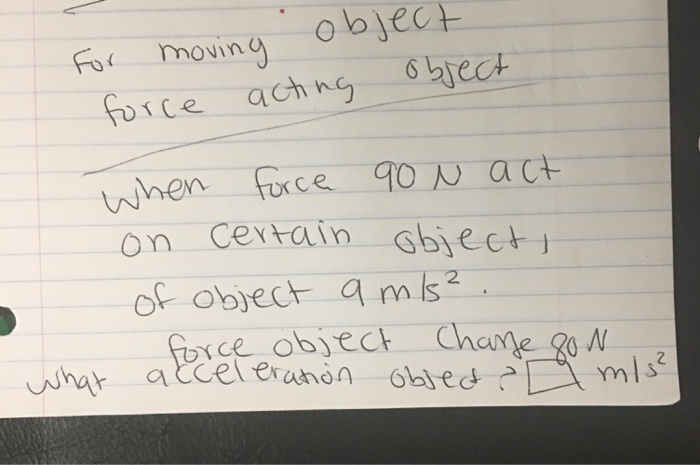 For moving object
force acting object
When force 90 N act
on certain object,
of object 9 m/s².
force object Change 80 N
What acceleration object? m/s²